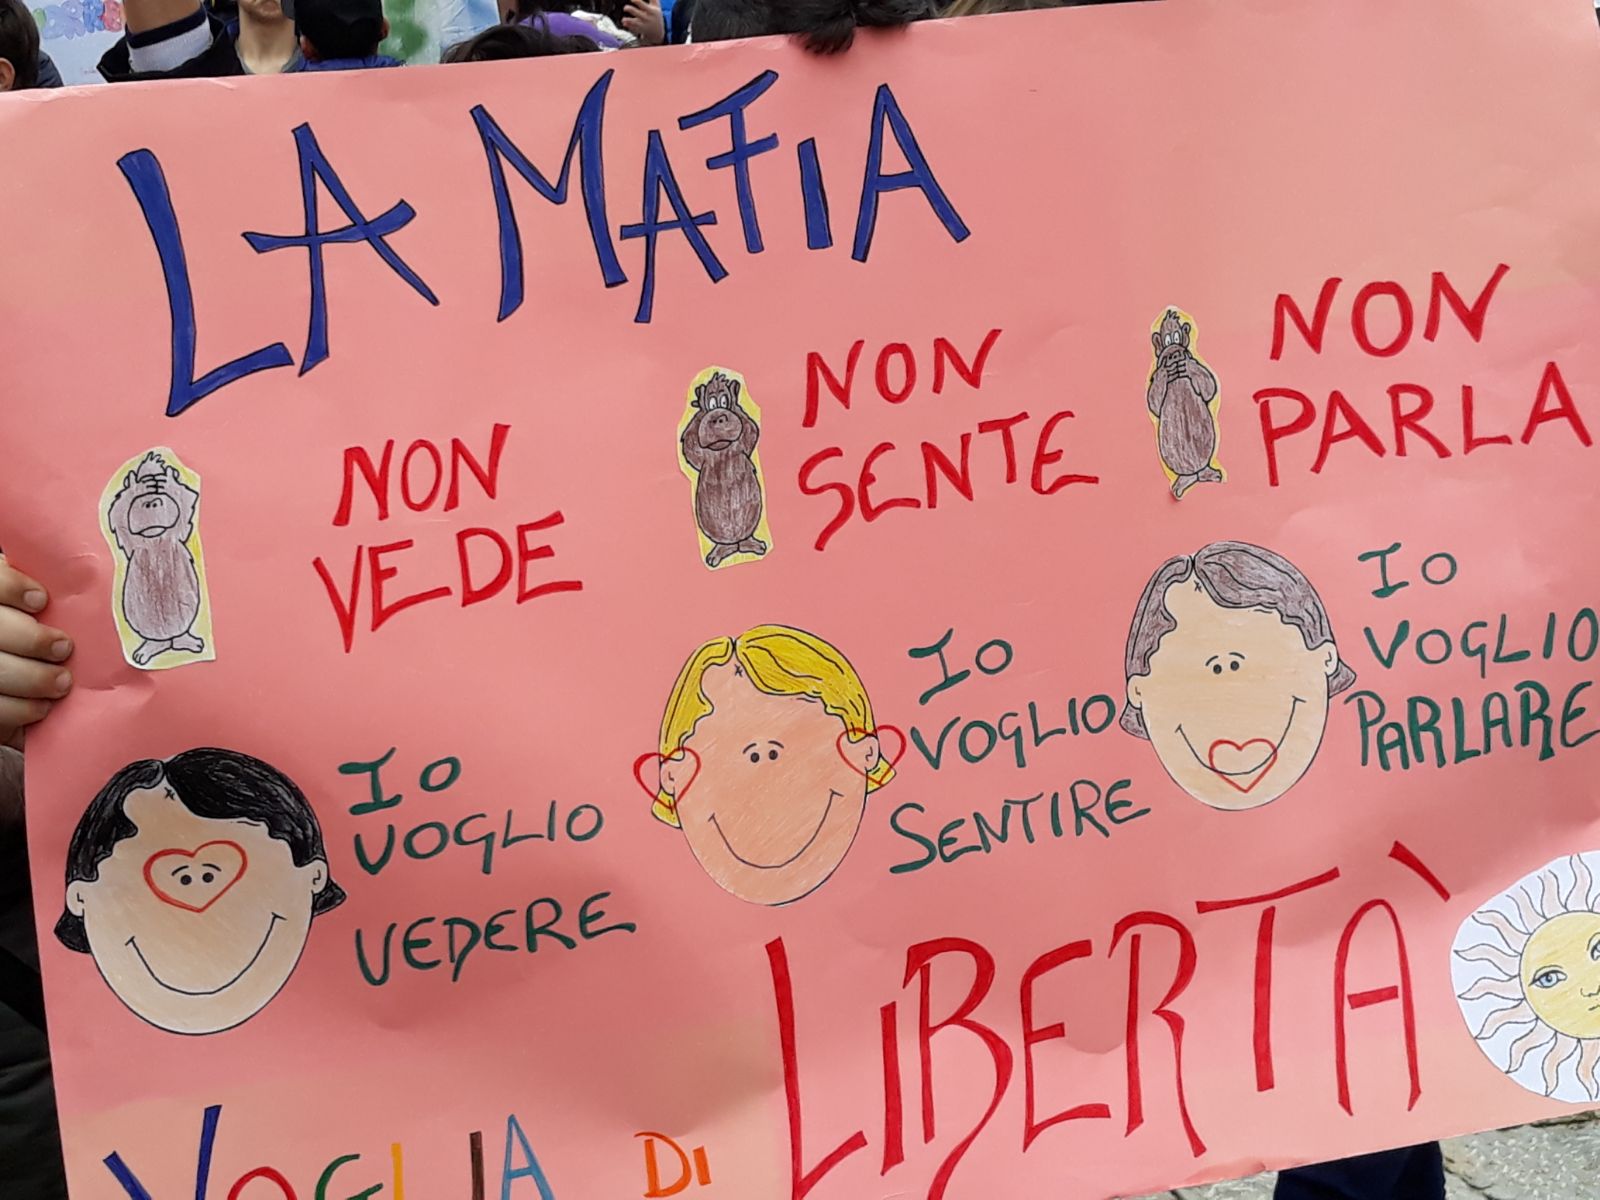 LA MAFIA
NON
VEDE
NON
SENTE
NON
PARLA
Io
VOGLIO
VEDERE
Io
VOGLIO
SENTIRE
Io
VOGLIO
PARLARE
VOGLIA DI LIBERTÀ